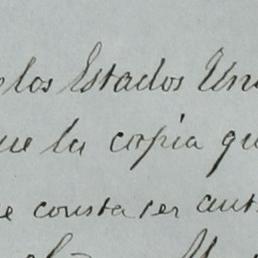 los Estados Uni
que la copia qu
e consta ser aut